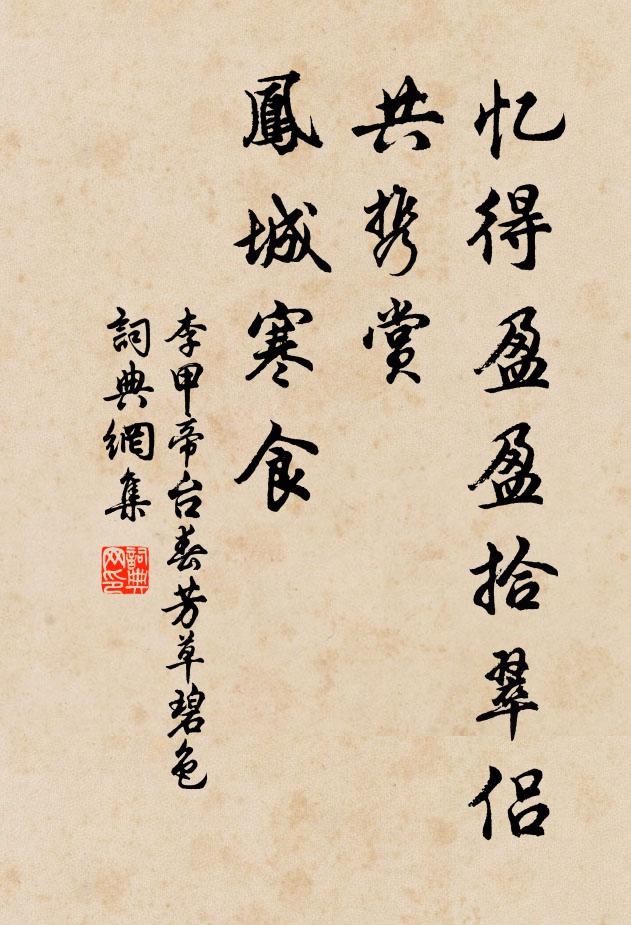 忆得盈盈拾翠侣
共携赏
鳳城寒食
李甲帝台春芳草碧色
詞典網集
詞典
网印